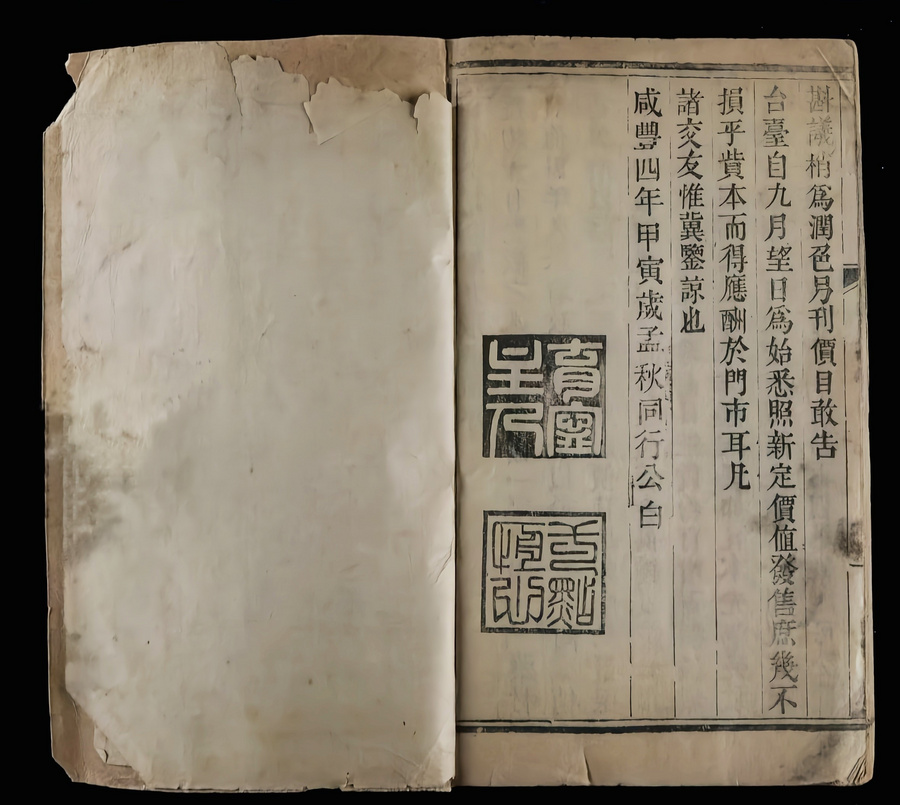 斟議稍爲潤色另刊價目敢告
台臺自九月望日爲始悉照新定價值發售庶幾不
損乎貲本而得應酬於門市耳凡
諸交友惟冀鑒諒也
咸豐四年甲寅歲孟秋同行公白